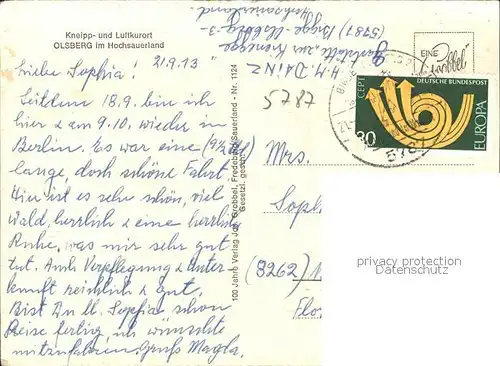 Kneipp- und Luftkurort
OLSBERG im Hochsauerland
Liebe Sophia! 21.9.73
Seitdem 18.9. bin ich
hier & am 9.10. wieder in
Berlin. Es war eine (9½ Std)
lange, doch schöne Fahrt
Hier ist es sehr schön, viel
Wald, herrlich & eine herrliche
Ruhe, was mir sehr gut
tut. Auch Verpflegung & Unter
kunft reichlich & gut.
Bist Du lb. Sophia schon
Reise fertig, ich wünschte
mitzufahren. Gruß Magla.
H. M. DAINZ
Gaststätte "zur
(5787) Bigge-Olsberg-3-
Hochsauerland
5787
100 Jahre Verlag Joh. Grobbel, Fredeburg/Sauerland - Nr. 1124
Gesetzl. gesch.
EINE
"Grobbel"
CEPT
DEUTSCHE BUNDESPOST
EUROPA
30
5787
Mrs.
Sopl.
(8262)
Flo.
privacy protection
Datenschutz